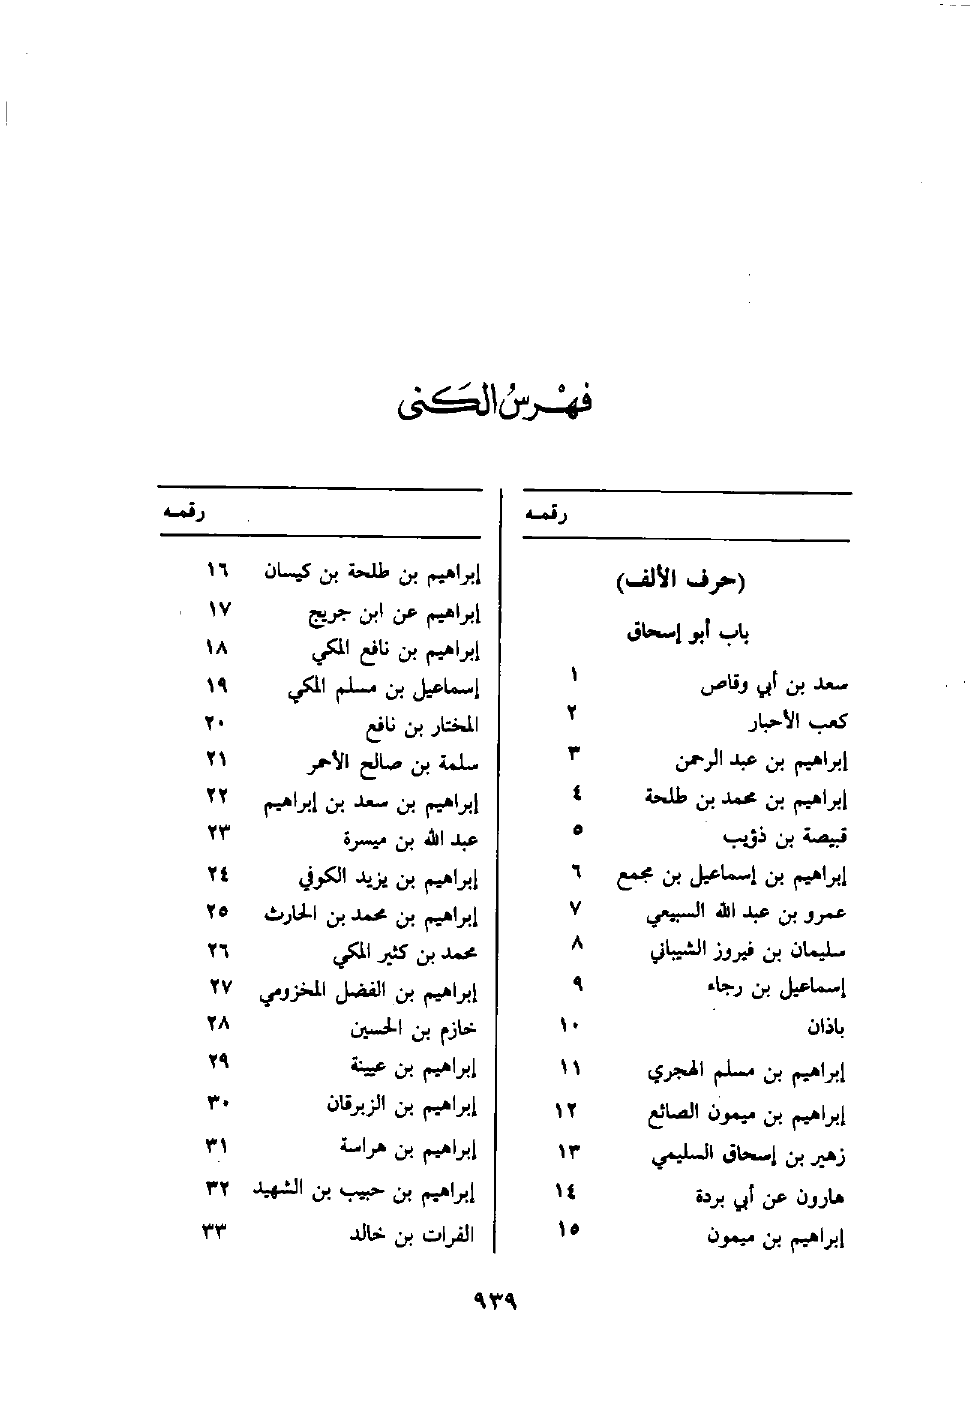 فهْرسُ الكَنى
رقمه
(حرف الألف)
باب أبو إسحاق
سعد بن أبي وقاص ١
كعب الأحبار ٢
إبراهيم بن عبد الرحمن ٣
إبراهيم بن محمد بن طلحة ٤
قبيصة بن ذؤيب ٥
إبراهيم بن إسماعيل بن مجمع ٦
عمرو بن عبد الله السبيعي ٧
سليمان بن فيروز الشيباني ٨
إسماعيل بن رجاء ٩
باذان ١٠
إبراهيم بن مسلم الهجري ١١
إبراهيم بن ميمون الصائع ١٢
زهير بن إسحاق السليمي ١٣
هارون عن أبي بردة ١٤
إبراهيم بن ميمون ١٥
رقمه
إبراهيم بن طلحة بن كيسان ١٦
إبراهيم عن ابن جريج ١٧
إبراهيم بن نافع المكي ١٨
إسماعيل بن مسلم المكي ١٩
المختار بن نافع ٢٠
سلمة بن صالح الأحمر ٢١
إبراهيم بن سعد بن إبراهيم ٢٢
عبد الله بن ميسرة ٢٣
إبراهيم بن يزيد الكوفي ٢٤
إبراهيم بن محمد بن الحارث ٢٥
محمد بن كثير المكي ٢٦
إبراهيم بن الفضل المخزومي ٢٧
خازم بن الحسين ٢٨
إبراهيم بن عيينة ٢٩
إبراهيم بن الزبرقان ٣٠
إبراهيم بن هراسة ٣١
إبراهيم بن حبيب بن الشهيد ٣٢
الفرات بن خالد ٣٣
٩٣٩